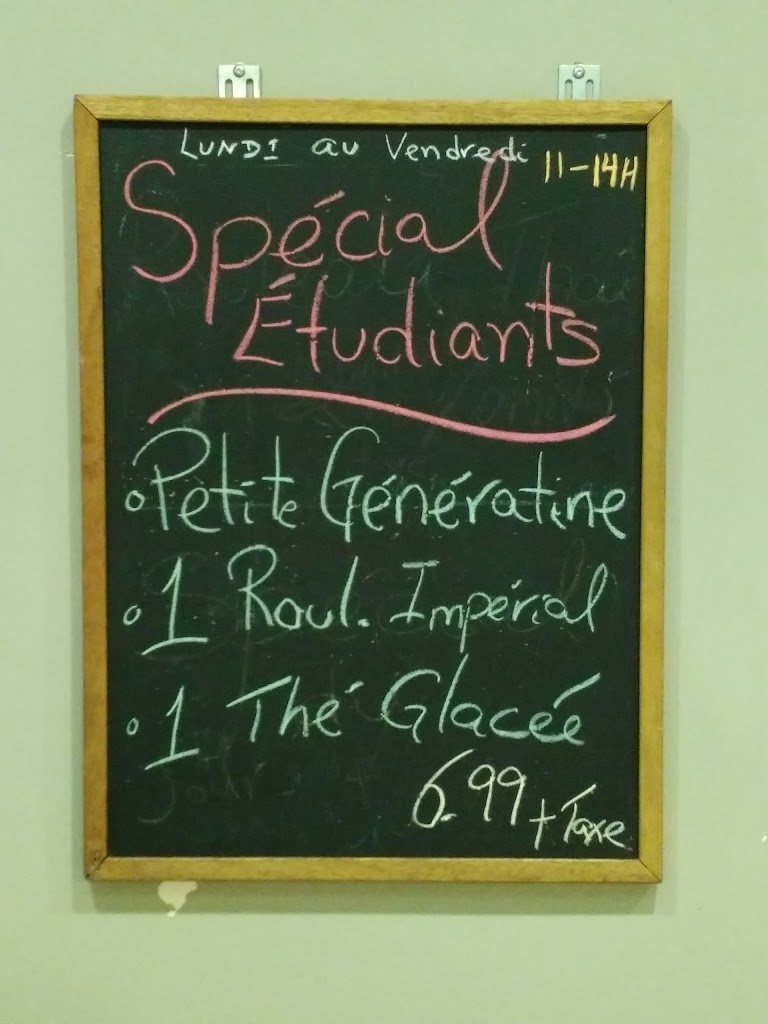 LUNDI au Vendredi 11-14H
Spécial
Étudiants
Petite Génératine
1 Roul. Impérial
1 Thé Glacée
6.99 + Taxe